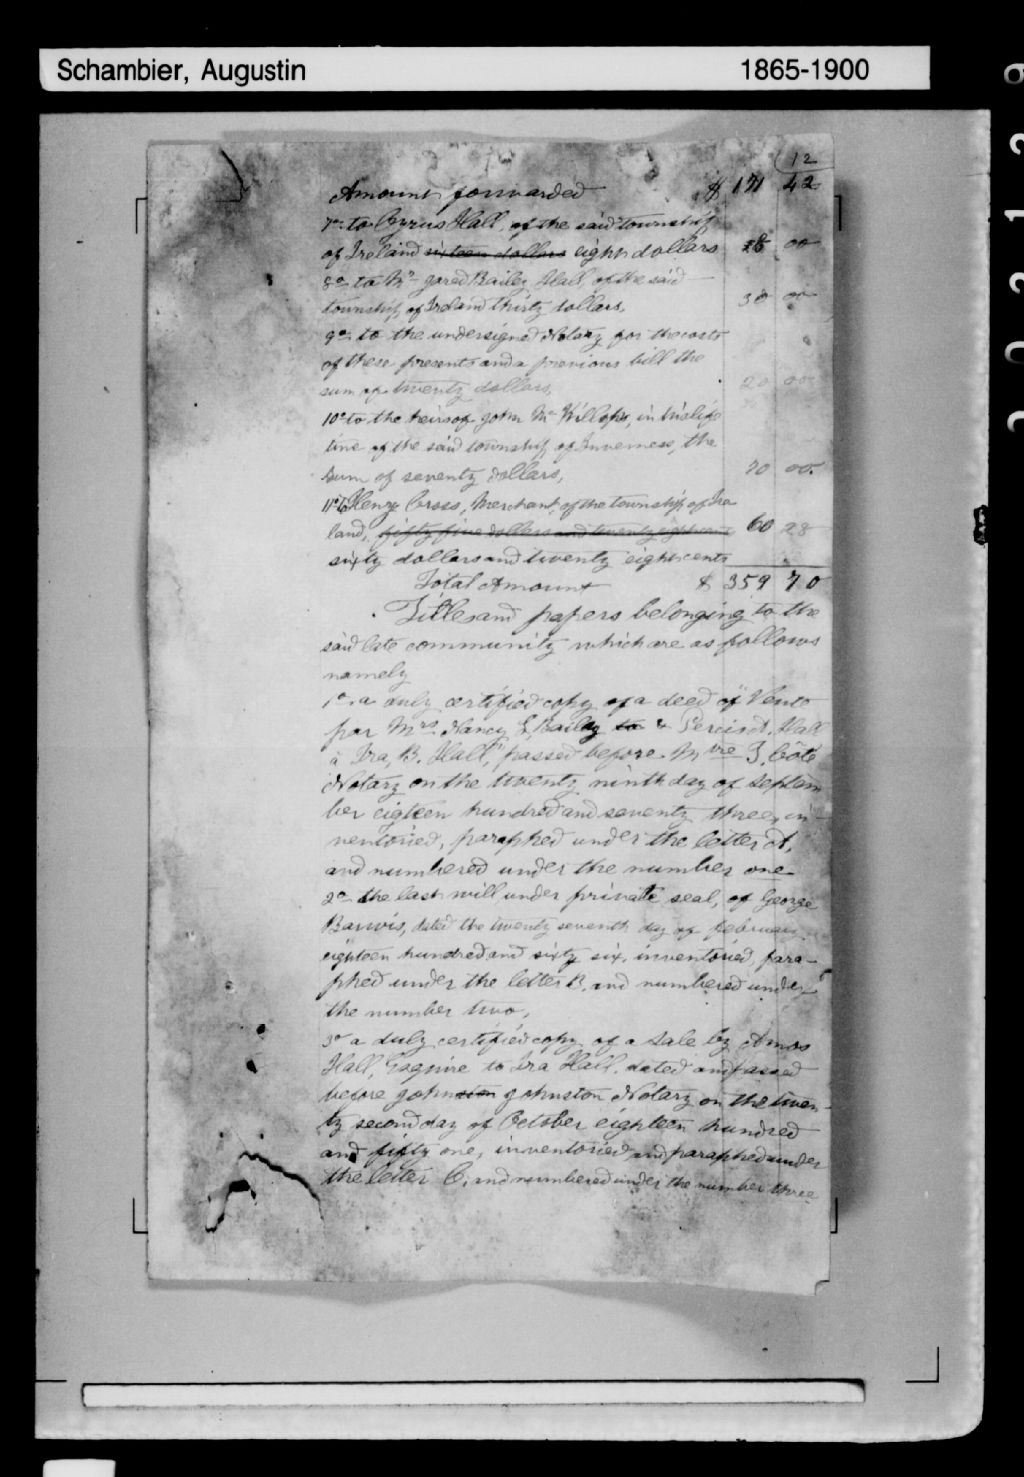 Schambier, Augustin 1865-1900
12
Amount forwarded $ 171 42
7o to Cyrus Hall, of the said township
of Ireland sixteen dollars eight dollars 8 00
8o to Mr Jared Bailey Hall, of the said
township of Ireland thirty dollars, 30 00
9o to the undersigned Notary for the costs
of these presents and a previous bill the
sum of twenty dollars, 20 00
10o to the heirs of John Mc Killop, in his life
time of the said township of Inverness, the
sum of seventy dollars, 70 00
11o to Henry Cross, Merchant, of the township of Ire
land, fifty five dollars and twenty eight cents 60 28
sixty dollars and twenty eight cents
Total Amount $ 359 70
Titles and papers belonging to the
said late community which are as follows
namely
1o a duly certified copy of a deed of "Vente
par Mrs. Nancy L. Bailey to & Percis A. Hall
à Ira B. Hall," passed before Mtre J. Coté
Notary on the twenty ninth day of Septem
ber eigteen hundred and seventy three, in-
ventoried, paraphed under the letter A,
and numbered under the number one
2o the last will under private seal, of George
Barwis, dated the twenty seventh day of february
eighteen hundred and sixty six, inventoried, para-
phed under the letter B, and numbered under
the number two,
3o a duly certified copy of a sale by Amos
Hall, Esquire to Ira Hall, dated and passed
before John Johnston Notary on the twen-
ty second day of October eighteen hundred
and fifty one, inventoried and paraphed under
the letter C, and numbered under the number three